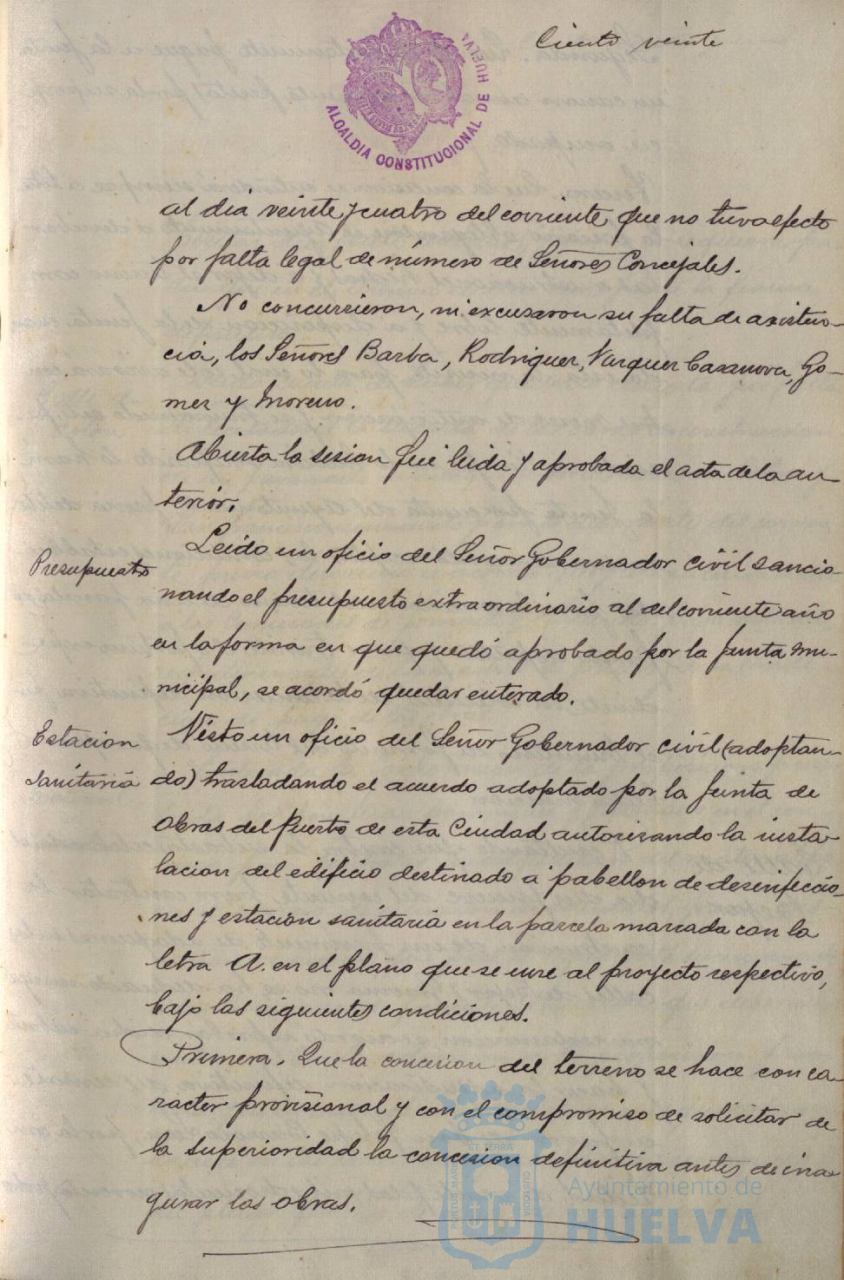 Ciento veinte
ALCALDIA CONSTITUCIONAL DE HUELVA
al dia veinte y cuatro del corriente que no tuvo efecto
por falta legal de número de Señores Concejales.
No concurrieron, ni excusaron su falta de axisten-
cia, los Señores Barba, Rodriguez, Vazquez Casanova, Go-
mez y Moreno.
Abierta la sesion fué leida y aprobada el acta de la an-
terior.
Presupuestro
Leido un oficio del Señor Gobernador civil sancio-
nando el presupuesto extraordinario al del corriente año
en la forma en que quedó aprobado por la Junta mu-
nicipal, se acordó quedar enterado.
Estacion
Sanitaria
Visto un oficio del Señor Gobernador civil (adoptan-
do) trasladando el acuerdo adoptado por la Junta de
Obras del Puerto de esta Ciudad autorizando la insta-
lacion del edificio destinado a pabellon de desinfeccio-
nes y estacion sanitaria en la parcela marcada con la
letra A. en el plano que se une al proyecto respectivo,
bajo las siguientes condiciones.
Primera. Que la concesion del terreno se hace con ca-
racter provisional y con el compromiso de solicitar de
la superioridad la concesion definitiva antes de ina-
gurar las obras.
Ayuntamiento de
HUELVA